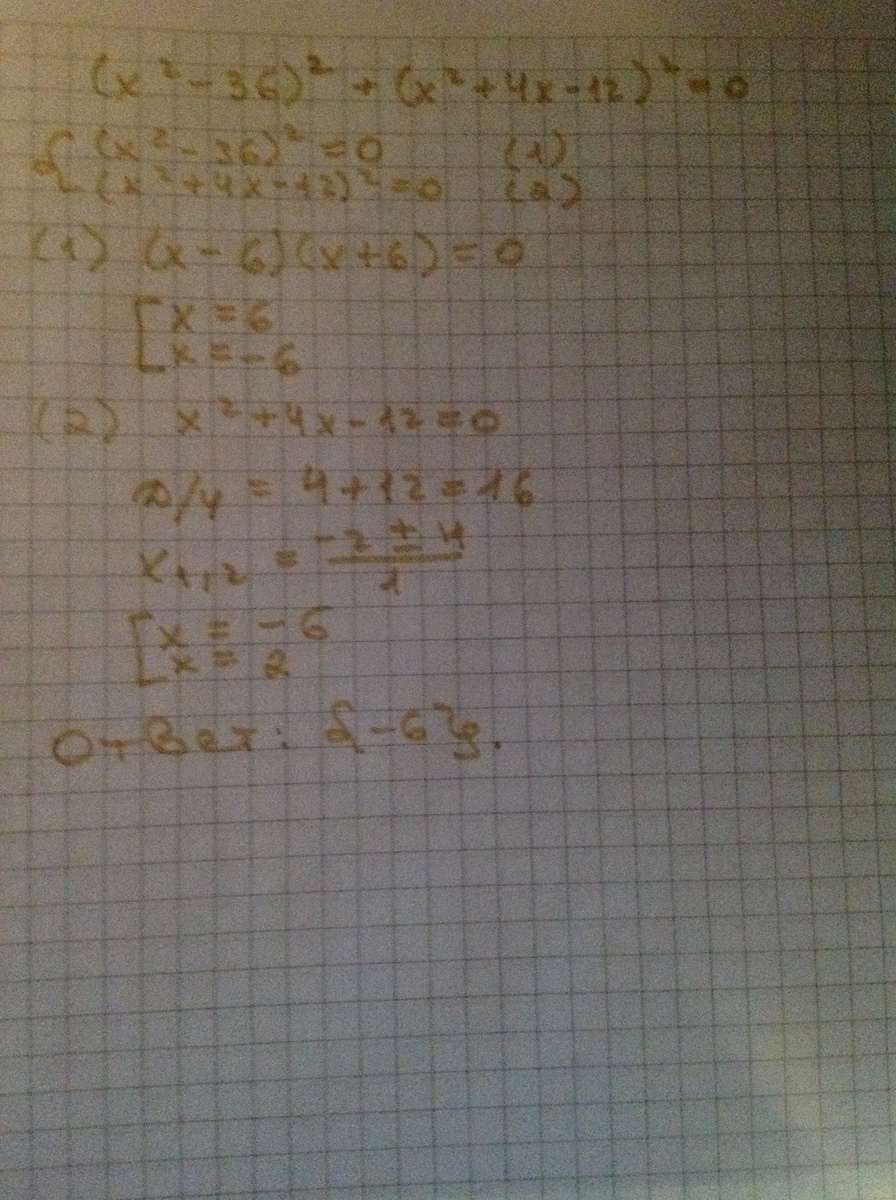 (x² - 36)² + (x² + 4x - 12)² = 0
{ (x² - 36)² = 0 (1)
(x² + 4x - 12)² = 0 (2)
(1) (x - 6)(x + 6) = 0
[ x = 6
x = -6
(2) x² + 4x - 12 = 0
D/4 = 4 + 12 = 16
x₁,₂ = (-2 ± 4)/1
[ x = -6
x = 2
Ответ: {-6}.